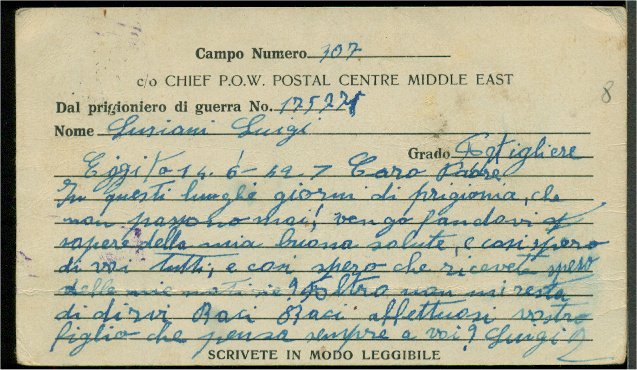 Campo Numero 307
c/o CHIEF P.O.W. POSTAL CENTRE MIDDLE EAST
8
Dal prigioniero di guerra No.
Nome Luigi
Grado Artigliere
Egitto 14-6-42 Caro Padre
In questi lunghi giorni di prigionia, che
non passono mai! vengo facendovi
sapere della mia buona salute, e cosi spero
di voi tutti, e cosi spero che ricevete speso
delle mie notizie? altro non mi resta
di dirvi Baci Baci affettuosi vostro
figlio che pensa sempre a voi? Luigi
SCRIVETE IN MODO LEGGIBILE